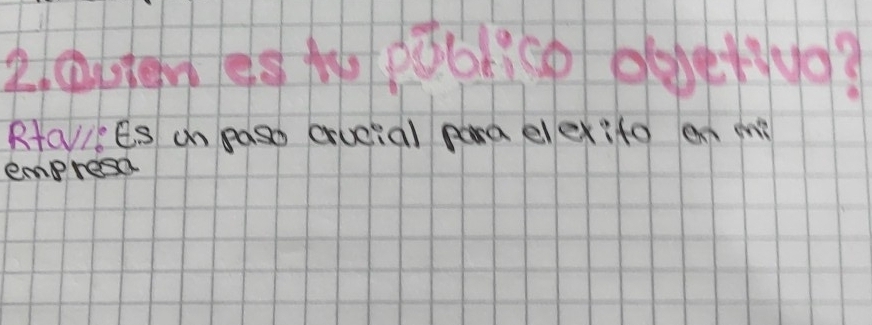 2. Quien es tu público objetivo?
Rta//: Es un paso crucial para el exito en mi
empresa